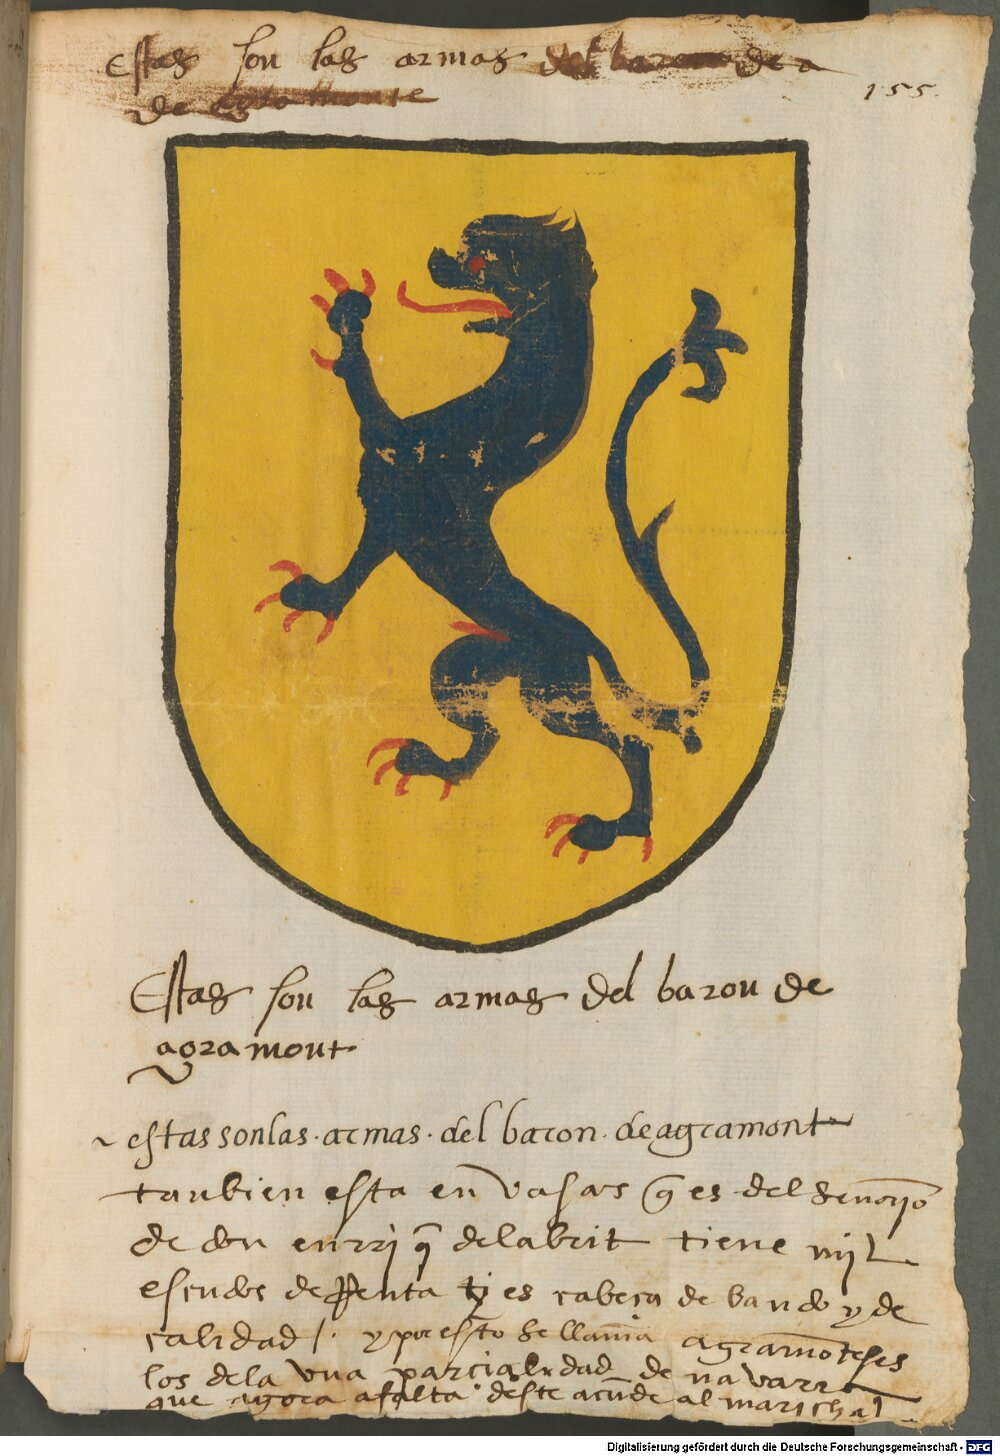 Estas son las armas del baron de a
de agramonte
155.
Estas son las armas del baron de
agramont
estas son las · armas · del baron · de agramont
tanbien esta en vasas q̃ es del senorio
de don enrriq̃ delabrit tiene mil
escudos de Renta y es cabeça de bando y de
calidad /. y por esto se llamã agramõteses
los dela vna parcialidad de navarra
que agora afalta deste acude al marichal
Digitalisierung gefördert durch die Deutsche Forschungsgemeinschaft - DFG